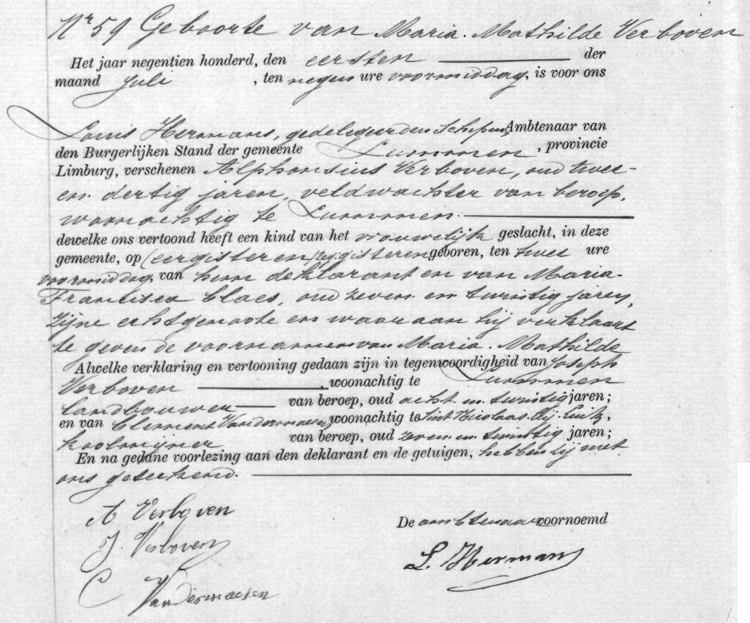 Nr 59 Geboorte van Maria Mathilde Verboven
Het jaar negentien honderd, den eersten der
maand Juli , ten negen ure voormiddag, is voor ons
Louis Hermans, gedelegeerden Schepen Ambtenaar van
den Burgerlijken Stand der gemeente Lummen, provincie
Limburg, verschenen Alphonsius Verboven, oud twee
en dertig jaren, veldwachter van beroep,
woonachtig te Lummen.
dewelke ons vertoond heeft een kind van het vrouwelijk geslacht, in deze
gemeente, op (eergisteren) geboren, ten twee ure
voormiddag van hem deklarant en van Maria
Francisca Claes, oud zeven en twintig jaren,
zijne echtgenoote en waaraan hij verklaart
te geven de voornamen van Maria. Mathilde
Alwelke verklaring en vertooning gedaan zijn in tegenwoordigheid van Joseph
Verboven , woonachtig te Lummen
landbouwer van beroep, oud acht en twintig jaren;
en van Clemens Vandermaesen, woonachtig te Sint Nicolas bij Luik,
koolmijner van beroep, oud zeven en twintig jaren;
En na gedane voorlezing aan den deklarant en de getuigen, hebben zij met
ons geteekend.
A Verboven
J. Verboven
C Vandermaesen
De ambtenaar voornoemd
L. Hermans